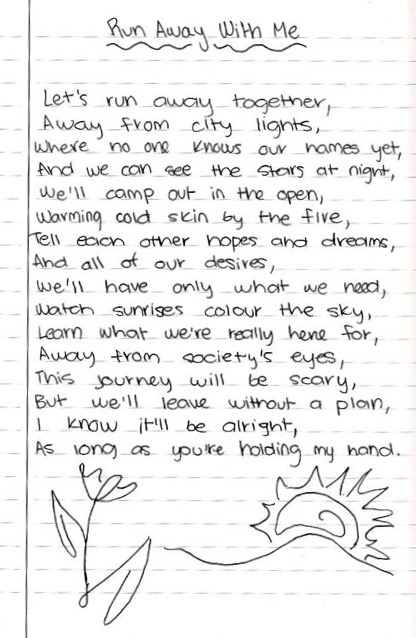 Run Away With Me
Let's run away together,
Away from city lights,
Where no one knows our names yet,
And we can see the stars at night,
We'll camp out in the open,
Warming cold skin by the fire,
Tell each other hopes and dreams,
And all of our desires,
We'll have only what we need,
Watch sunrises colour the sky,
Learn what we're really here for,
Away from society's eyes,
This journey will be scary,
But we'll leave without a plan,
I know it'll be alright,
As long as you're holding my hand.